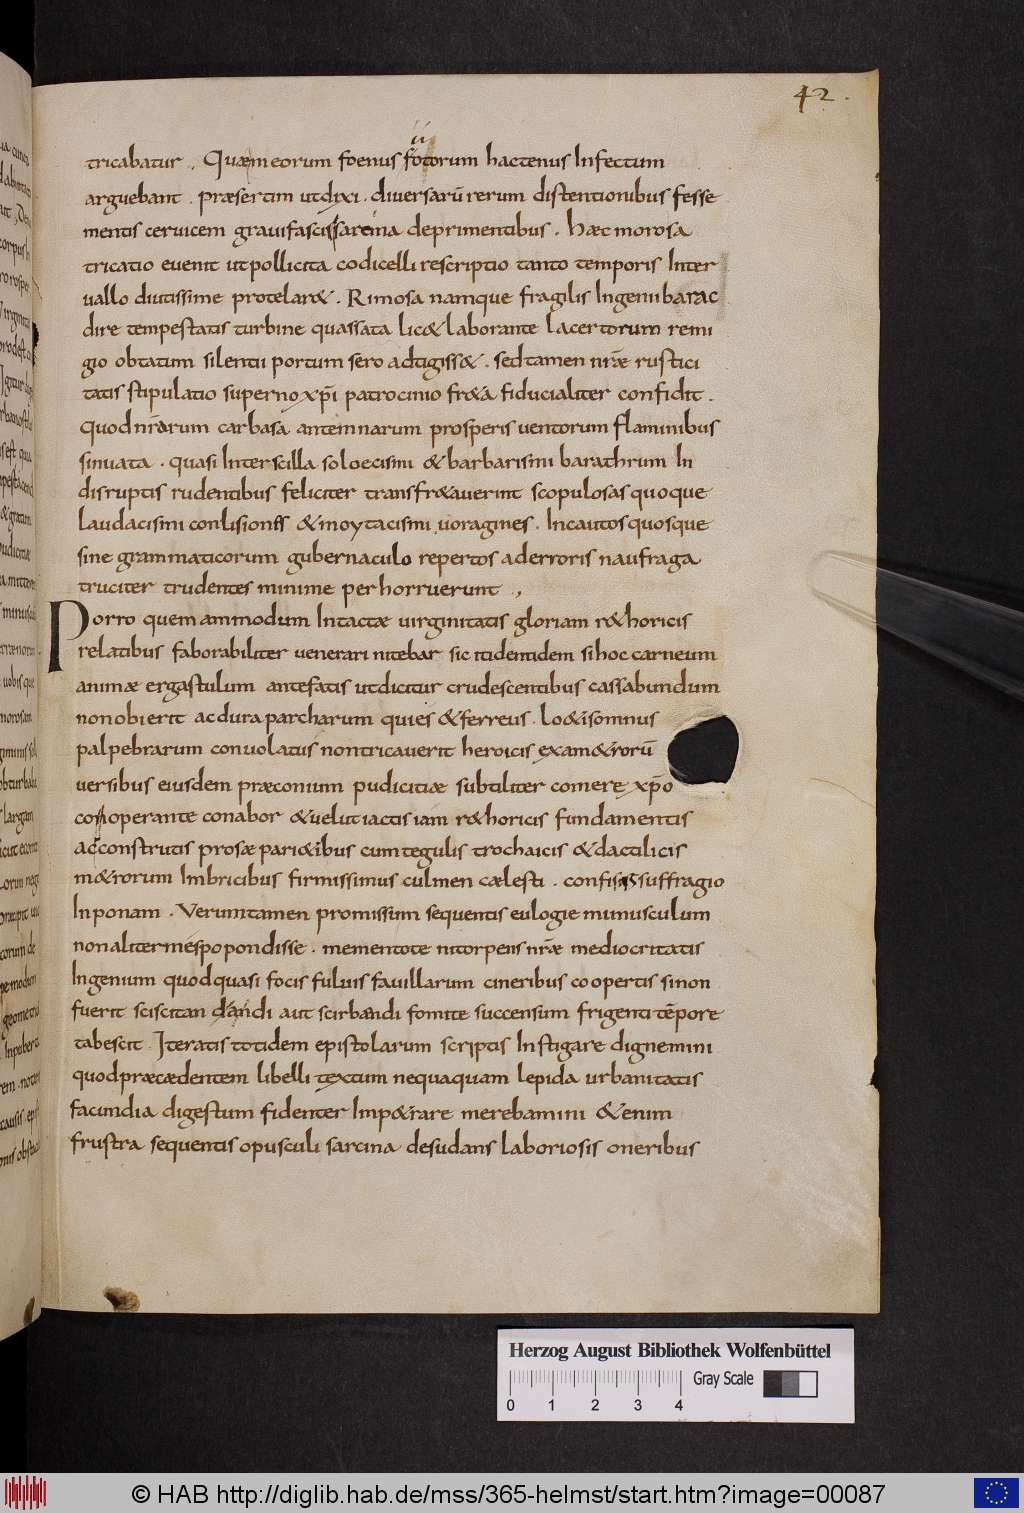 42.
tricabatur ., Quæm eorum foenus fotorum hactenus Infectum
arguebant . præsertim utdixi . diversarū rerum distentionibus fesse
mentis cervicem gravi fascis sarcina deprimentibus . hæc morosa
tricatio evenit ut pollicita codicelli rescriptio tanto temporis Inter
vallo diutissime protelar& . Rimosa namque fragilis Ingenii barac
dire tempestatis turbine quassata lic& laborante lacertorum remi
gio obtatum silentii portum sero adtigiss& . sed tamen nr̄æ rustici
tatis stipulatio superno xp̄i patrocinio fr&a fiducialiter confidit .
quod nr̄arum carbasa antemnarum prosperis ventorum flaminibus
sinuata . quasi Inter scilla soloecismi & barbarismi barathrum In
disruptis rudentibus feliciter transfr&averint scopulosas quoque
laudacismi conlisiones & moytacismi voragines . Incautos quosque
sine grammaticorum gubernaculo repertos ad erroris naufraga
truciter trudentes minime perhorruerunt .,
Porro quemammodum Intactæ virginitatis gloriam r&horicis
relatibus faborabiliter venerari nitebar sic itidentidem si hoc carneum
animæ ergastulum antefatis ut dicitur crudescentibus cassabundum
non obierit ac dura parcharum quies & ferreus . lo&i somnus
palpebrarum convolatus non tricaverit heroicis exam&rorū
versibus eiusdem præconium pudicitiæ subtiliter comere xp̄o
cooperante conabor & velut iactis iam r&horicis fundamentis
ac construtis prosæ pari&ibus cum tegulis trochaicis & dactilicis
m&rorum Imbricibus firmissimus culmen cælesti . confisus suffragio
Inponam . Verumtamen promissum sequentis eulogie munusculum
non aliter me spopondisse . mementote ni torpens nr̄æ mediocritatis
Ingenium quod quasi focis fulvis favillarum cineribus coopertis sinon
fuerit sciscitandi aut scirbandi fomite succensum frigenti tēpore
tabescit . Iteratis totidem epistolarum scriptis Instigare dignemini
quod præcædentem libelli textum nequaquam lepida urbanitatis
facundia digestum fidenter Imp&rare merebamini & enim
frustra sequentis opusculi sarcina desudans laboriosis oneribus
Herzog August Bibliothek Wolfenbüttel
0 1 2 3 4 Gray Scale
© HAB http://diglib.hab.de/mss/365-helmst/start.htm?image=00087